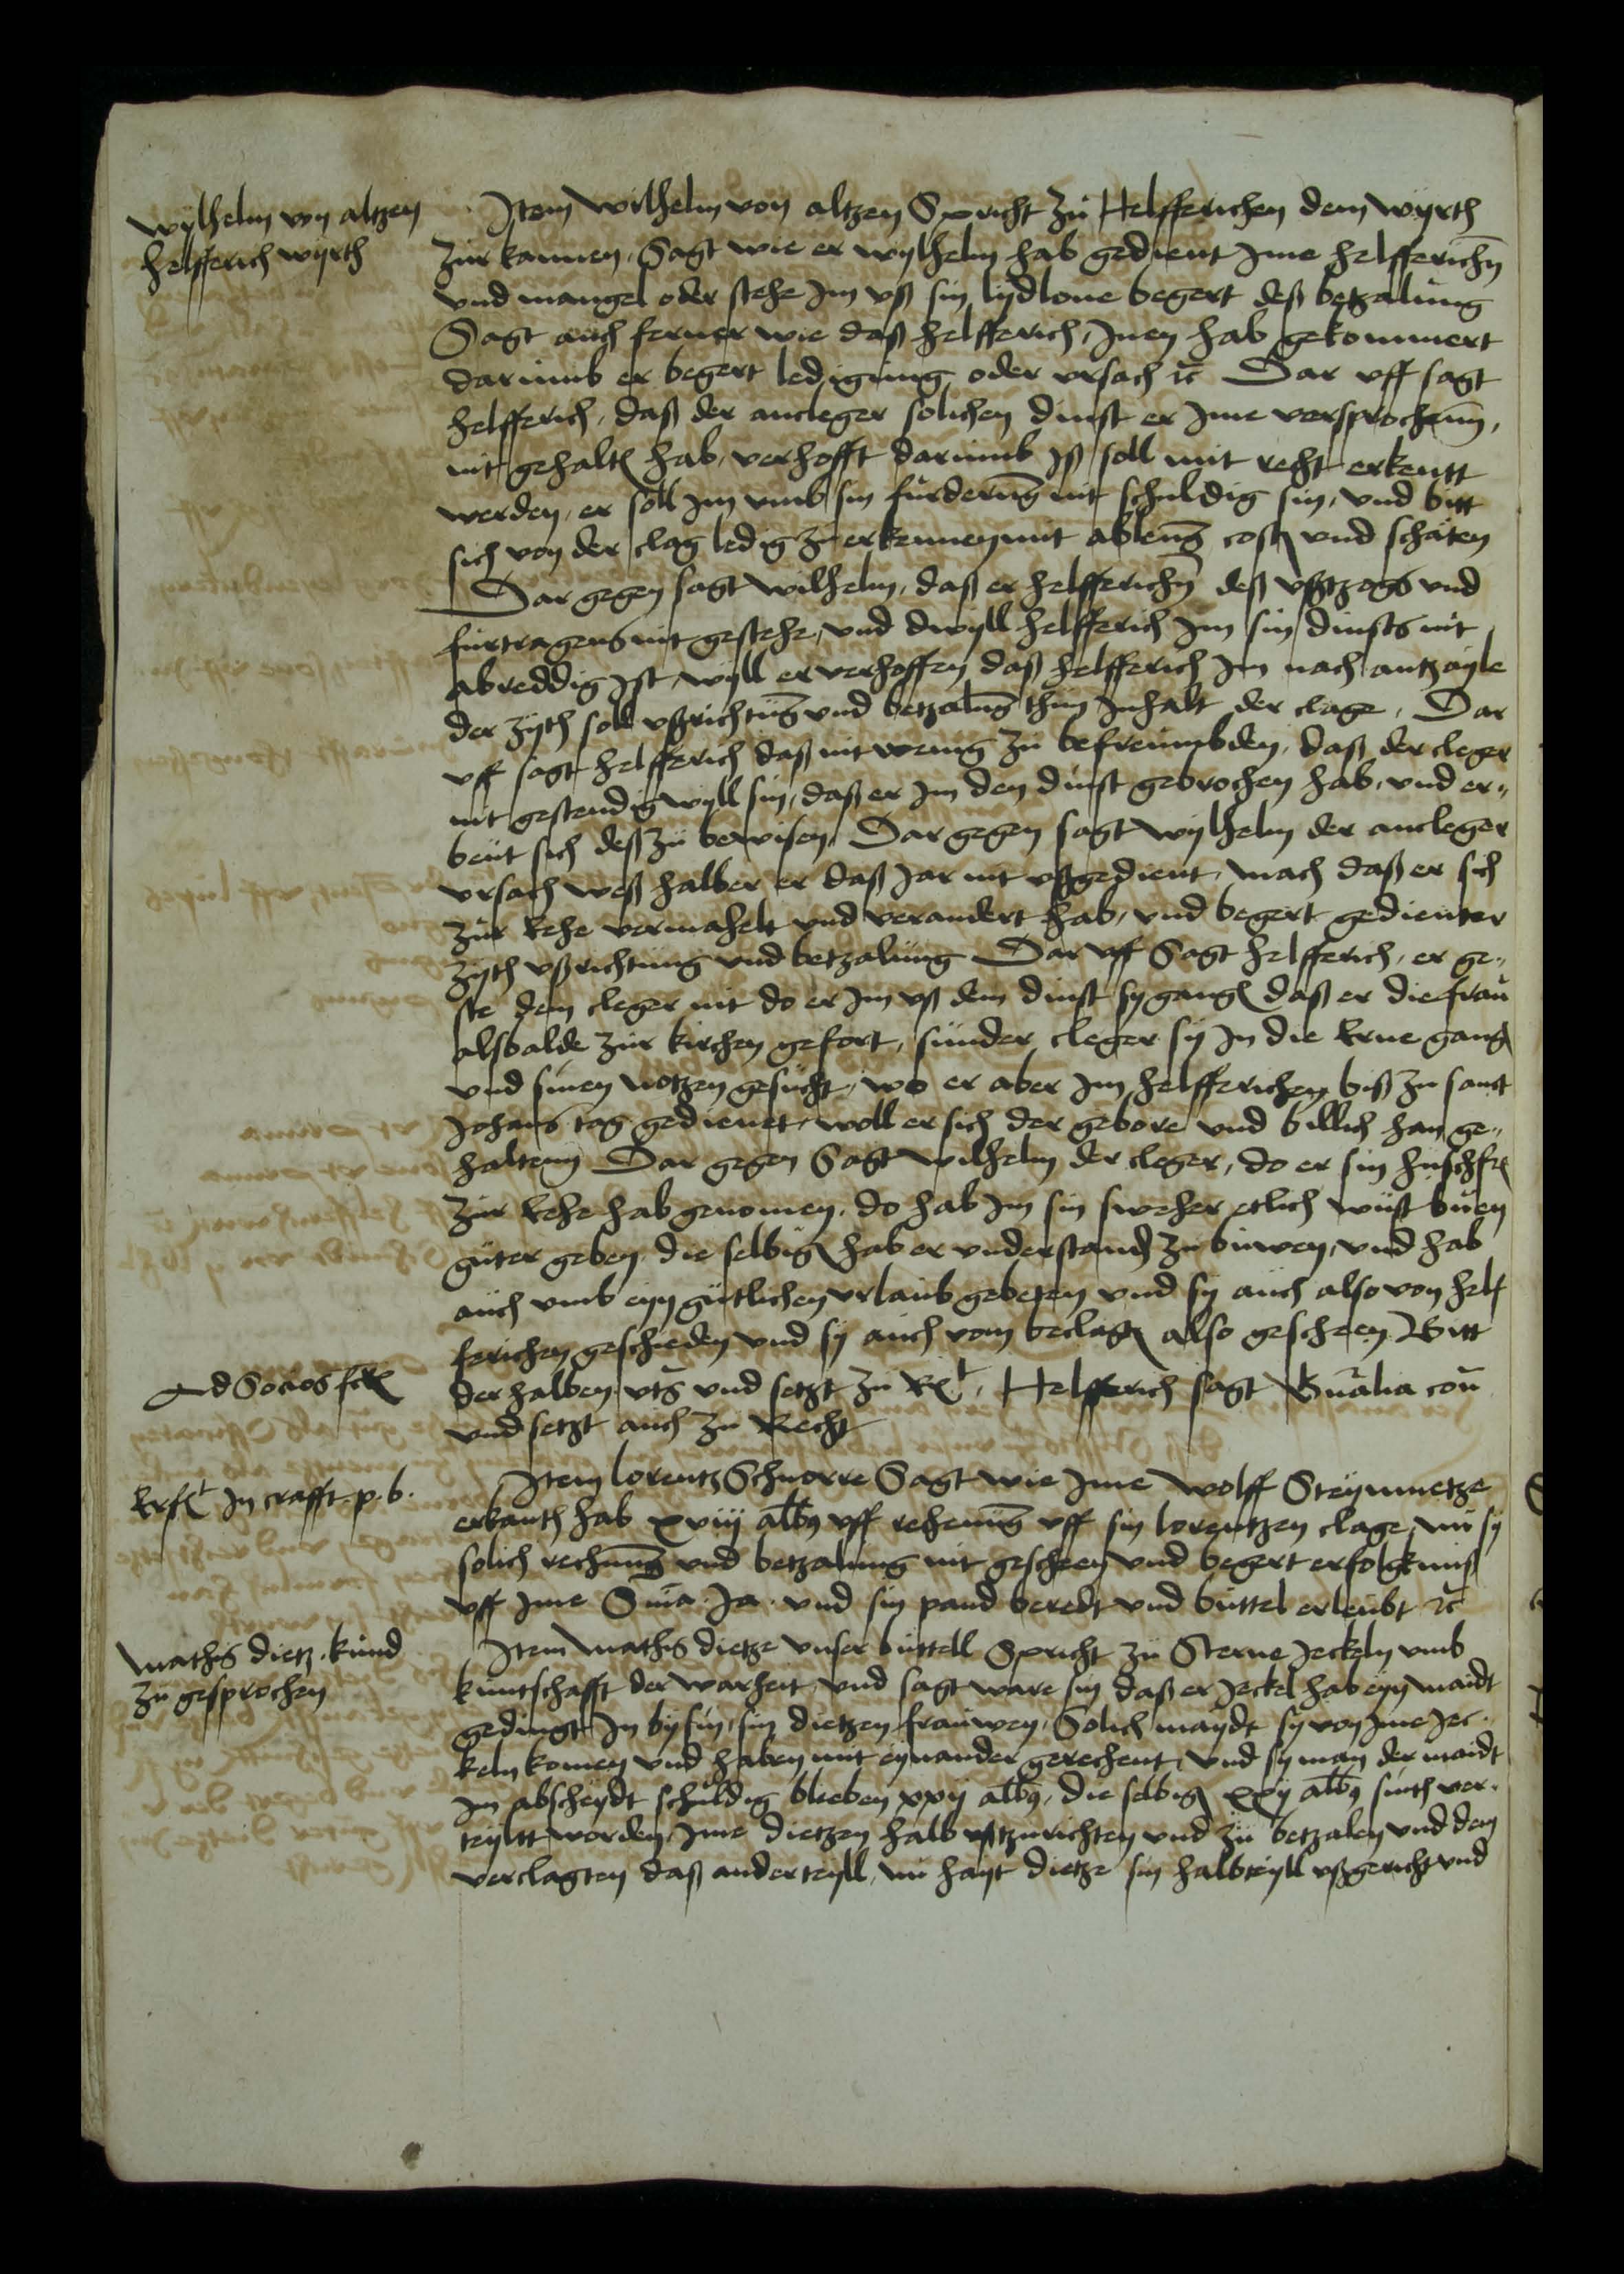 wylhelm von altzen
helfferich wyrth
Item Wilhelm von altzen Spricht zu Helfferichen dem wyrth
zur kannen, Sagt wie er wylhelm hab gedient Ime helfferichn
und mangel oder stehe Im uß sin lydlone begert deß betzalung
Sagt auch ferner wie daß helfferich, Inen hab gekommert
darumb er begert ledigung oder ursach ec Dar uff sagt
helfferich, daß der ancleger solichen dinst er Ime versprochenn,
nit gehalten hab, verhofft darumb Iß soll mit recht erkentt
werden, er soll Im umb sin furderung nit schuldig sin, und bitt
sich von der clag ledig zu erkennen mit ableng costen und schaten
Dar gegen sagt wilhelm, daß er helfferichn deß ußtzogs und
furtragens nit gestehe, und dwyll helfferich Im sin dinsts nit
abreddig Ist, wyll er verhoffen daß helfferich Im nach antzayle
der zyth soll ußrichtung und betzalung thun Inhalt der clage, Dar
uff sagt helfferich daß nit wenig zu befreumbden, daß der cleger
nit gestendig wyll sin, daß er Im den dinst gebrochen hab, und er-
beut sich deß zu bewisen, Dar gegen sagt wylhelm der ancleger
ursach weß halber er daß Jar nit ußgedient, mach daß er sich
zur Eehe vermahelt und verandert hab, und begert gedienter
zyth ußrichtung und betzalung Dar uff Sagt helfferich, er ge-
ste dem cleger nit do er Im uß dem dinst sy gangen daß er die frau
alsbalde zur kirchen gefort, sunder cleger sy In die Erne gangen
und sinen notzen gesucht, wo er aber Im helfferichen biß zu sanct
Johans tag gedienet, woll er sich der gebore und billich han ge-
haltenn Dar gegen Sagt wilhelm der cleger, do er sin hußfr
zur Eehe hab genomen, do hab Im sin sweher etlich wust buen
guter geben, die selbigen hab er understanden zu buwen, und hab
auch umb eyn gutlichen urlaub gebeten und sy auch also von helf
ferichen geschieden und sy auch vom beclagten also gescheen Bitt
Ad Socios
der halben uts und setzt zu Rt, Helfferich sagt Gnalia con
und setzt auch zu Recht
Erft In crafft. p. b.
Item lorentz Schnorre Sagt wie Ime wolff Steynmetze
erkanth hab xviij albus uff rechenung uff sin lorentzen clage, nu sy
solich rechnung und betzalung nit gescheen und begert erfolgkniß
uff Ime Sma. Ja. und sin pand beredt und buttel erleubt ec
Mathis dietz. kund
zu gesprochen
Item Mathis dietze unser buttell Spricht zu Sterne Jeckeln umb
kuntschafft der warheit, und sagt ware sin daß er Jeckel hab eyn maidt
gedingt In bysin, sin dietzen frauwen, Solich maydt sy von Ime Jec-
keln komen und haben mit eynander gerechent, und sy man der maidt
Im abscheydt schuldig blieben xxij albus, die selbigen xxij albus sinth ver-
teyltt worden, Ime dietzen halb ußtzurichten und zu betzalen und dem
verclagten daß ander teyll, nu hayt dietze sin halbteyll ußgericht und